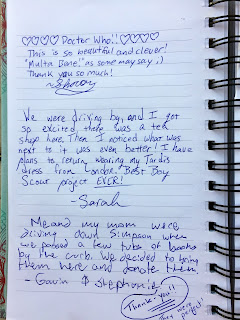 ♡♡♡♡ Doctor Who!! ♡♡♡♡
This is so beautiful and clever!
"Multa Bane!" as some may say ;)
Thank you so much!
We were driving by, and I got
so excited, there was a tea
shop here. Then I noticed what was
next to it was even better! I have
plans to return, wearing my Tardis
dress from London. Best Boy
Scout project EVER!
-Sarah
Me and my mom were
driving down Simpson when
we passed a few tubs of books
by the curb. We decided to bring
them here and donate them.
- Gavin & Stephanie
Thank you!!
perfect!